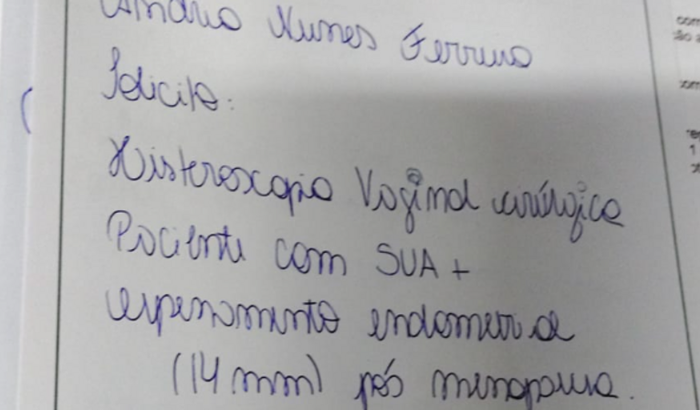 Nunes Ferreira
Solicito:
Histeroscopia Vaginal cirúrgica
Paciente com SUA +
espessamento endometrial
(14 mm) pós menopausa.